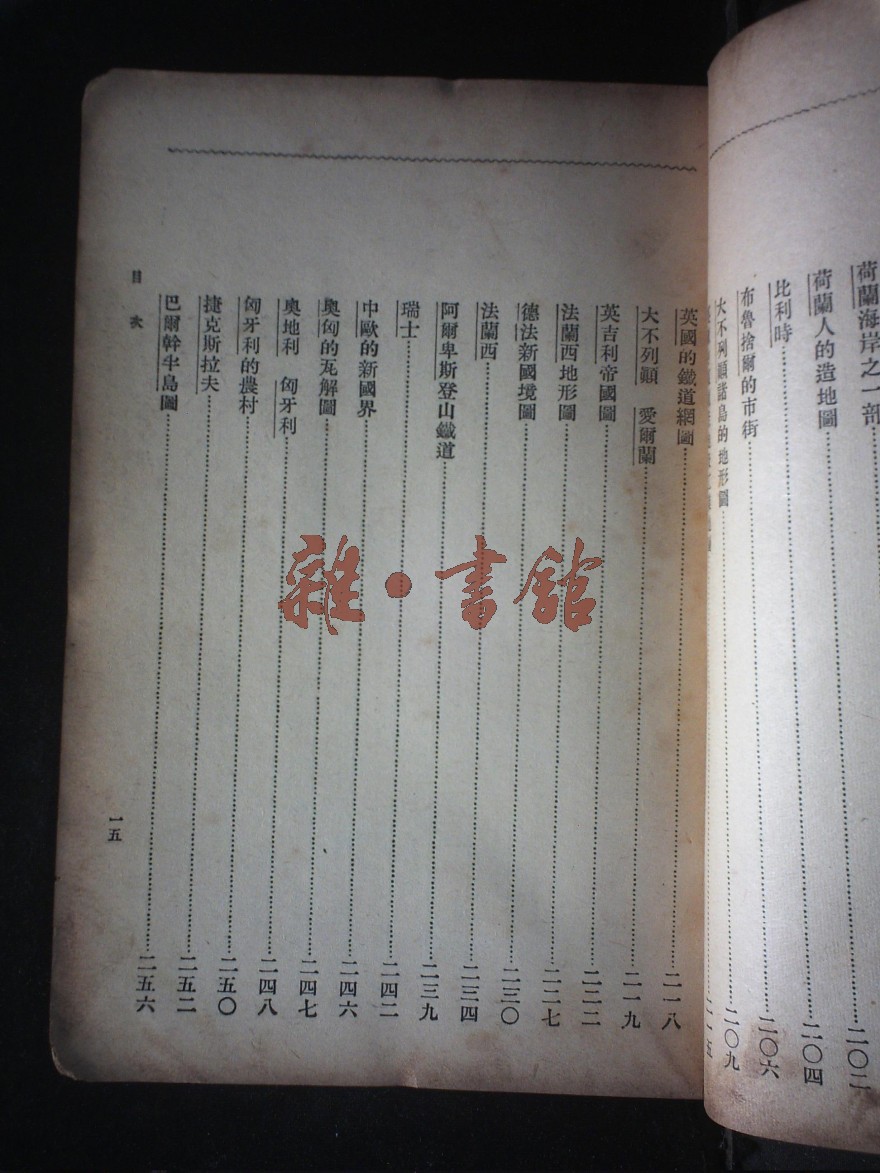 荷蘭海岸之一部
荷蘭人的造地圖……二〇二
比利時……二〇四
布魯捨爾的市街……二〇六
大不列顛諸島的地形圖……二〇九
二一五
英國的鐵道網圖……二一八
大不列顛　愛爾蘭……二一九
英吉利帝國圖……二二二
法蘭西地形圖……二二七
德法新國境圖……二三〇
法蘭西……二三四
阿爾卑斯登山鐵道……二三九
瑞士……二四二
中歐的新國界……二四六
奧匈的瓦解圖……二四七
奧地利　匈牙利……二四八
匈牙利的農村……二五〇
捷克斯拉夫……二五二
巴爾幹半島圖……二五六
目次
一五
雜·書館